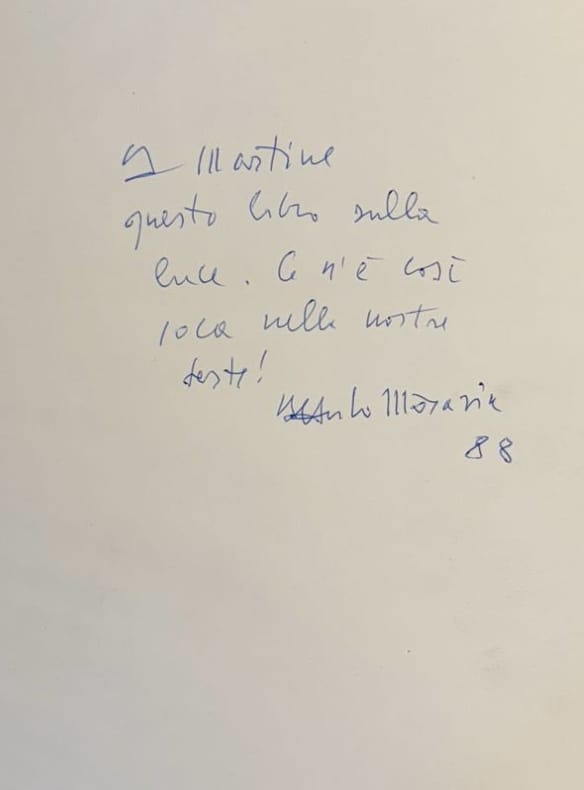 A Martine
questo libro sulla
luce. Ce n'è così
poca nelle nostre
teste!
Alberto Moravia
88